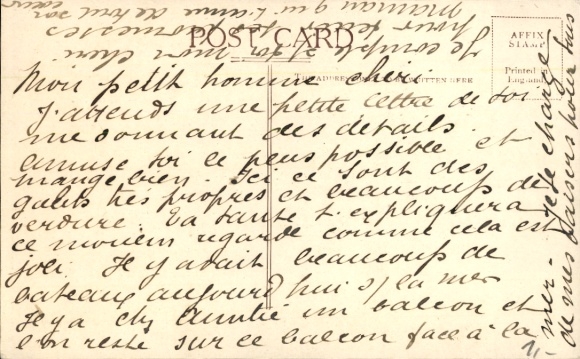 POST CARD
AFFIX
STAMP
Printed in
England
THE ADDRESS TO BE WRITTEN HERE
Mon petit homme cher,
J'attends une petite lettre de toi
me donnant des détails.
amuse toi le plus possible et
mange bien. Ici ce sont des
galets très propres et beaucoup de
verdure. Ta tante t'expliquera
ce regarde comme cela est
joli. Il y avait beaucoup de
bateaux aujourd'hui s/ la mer
Il y a chz Auntie un balcon et
l'on reste sur ce balcon face à la
mer - Je te charge
de mes baisers pour tous
Je compte s/ toi mon chéri
pour tenir tes promesses
Maman qui t'aime de tout cœur
1/-